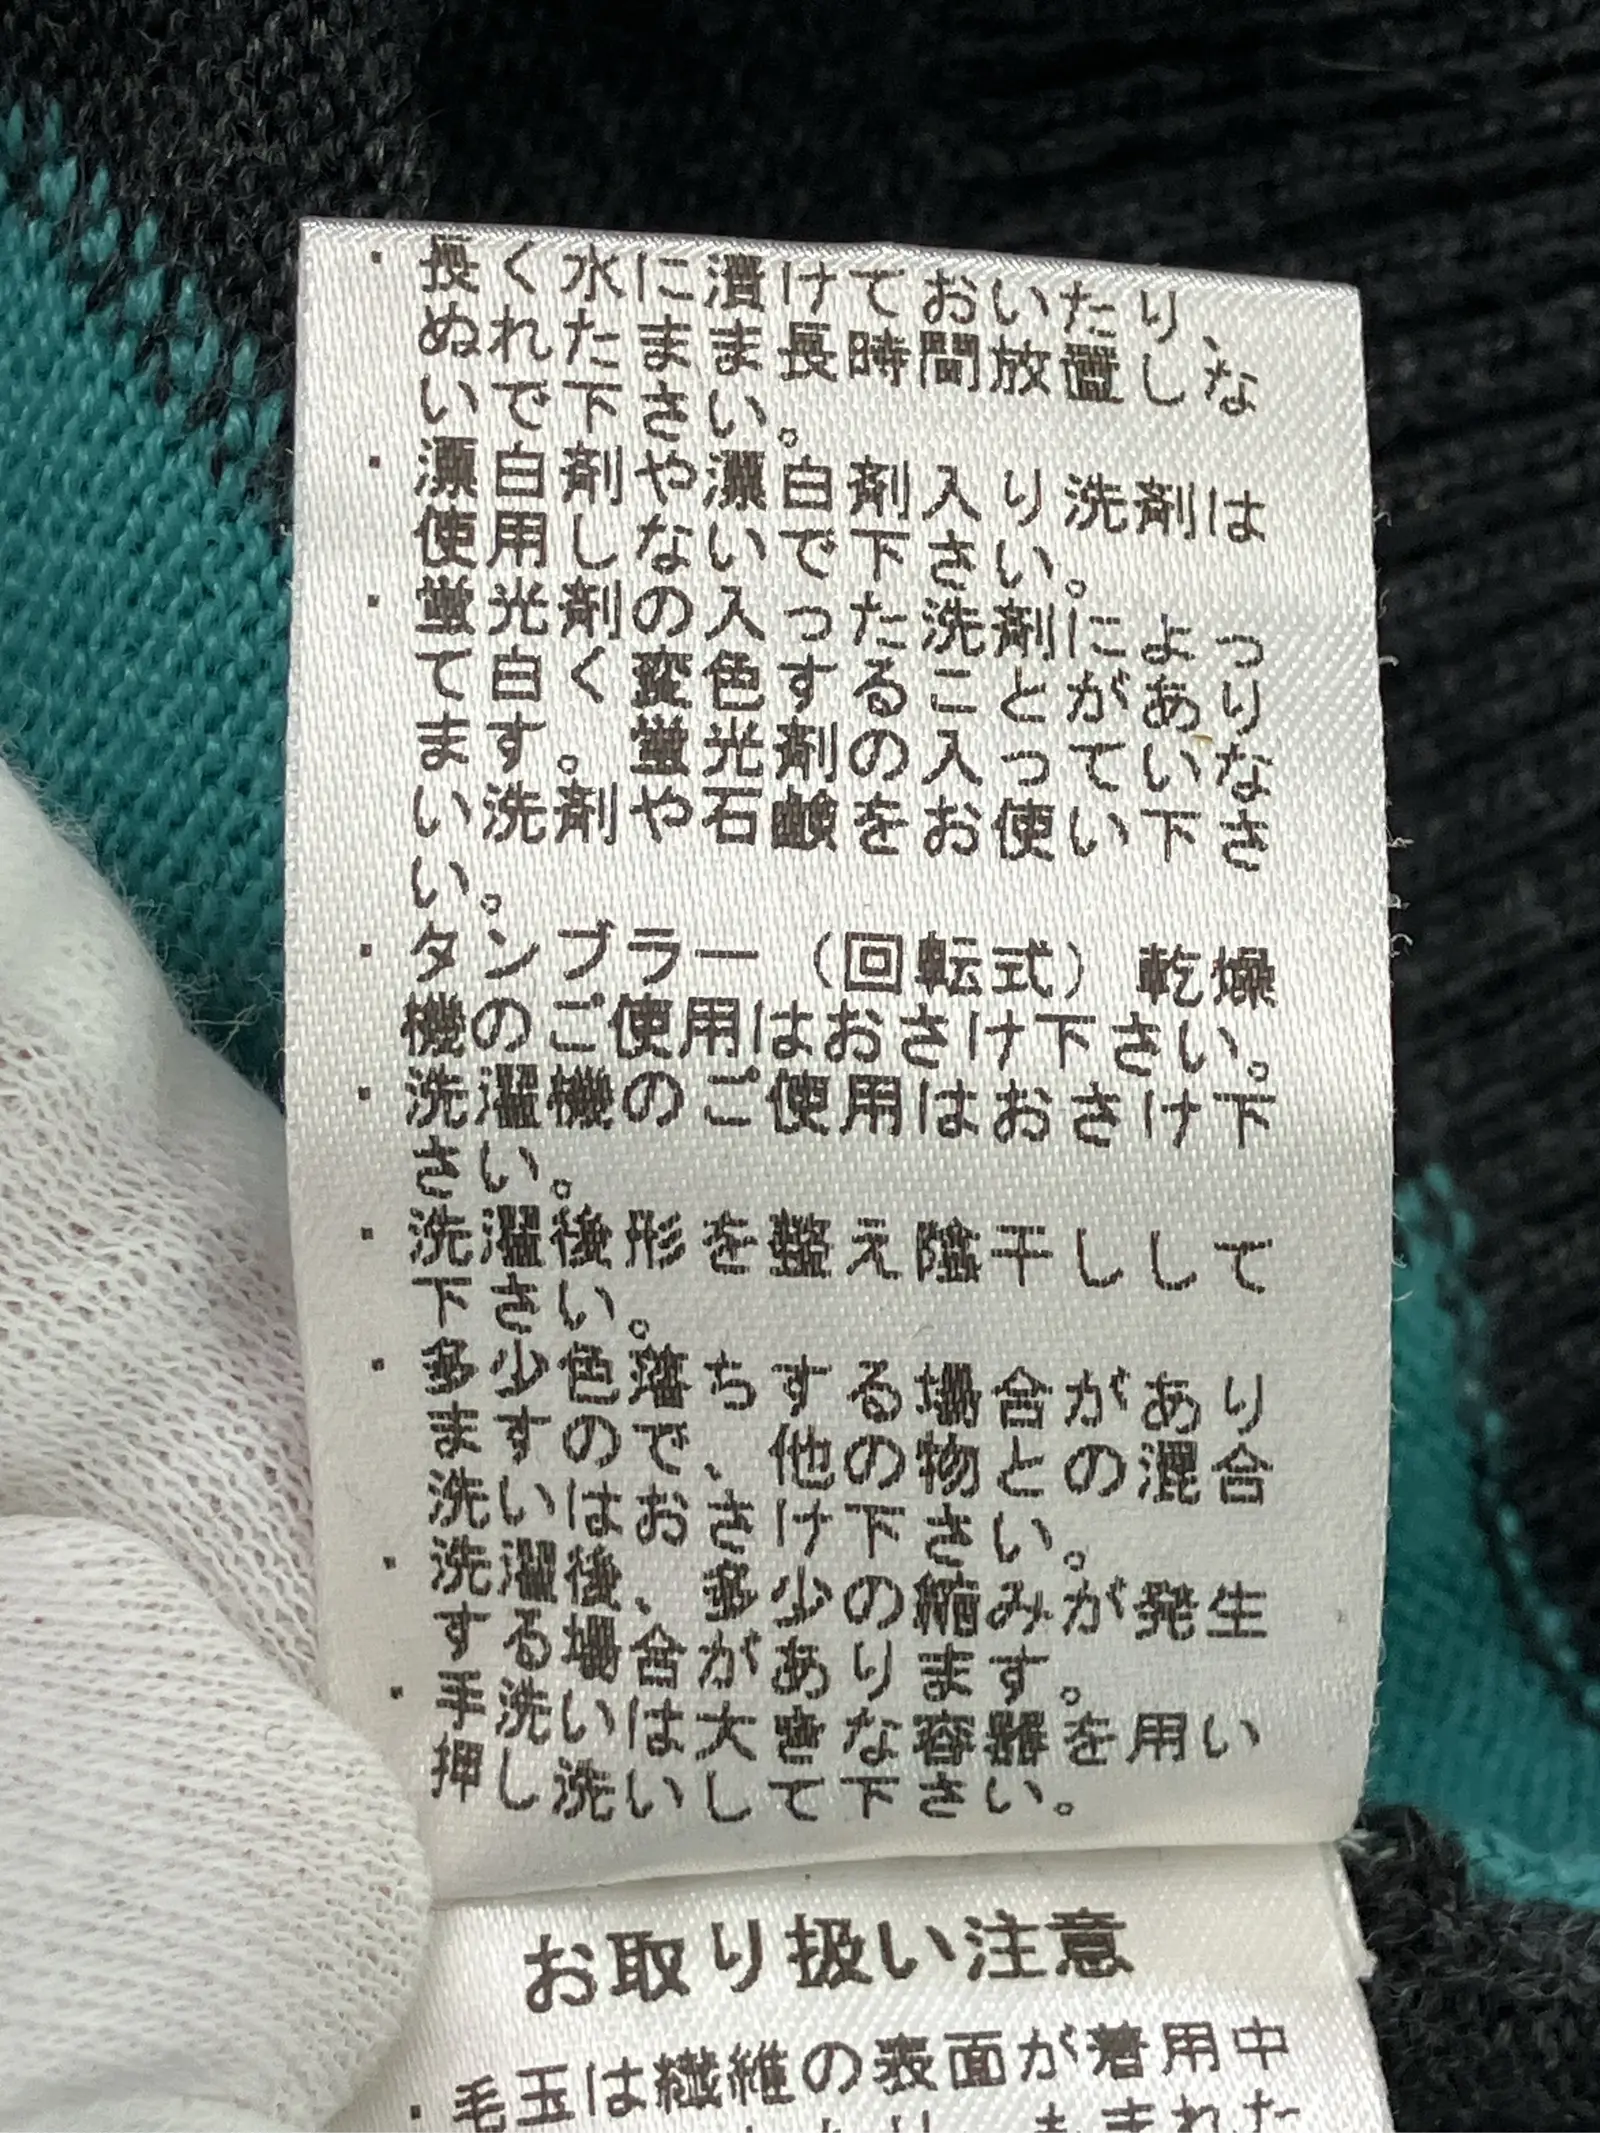 ・長く水に漬けておいたり、
ぬれたまま長時間放置しな
いで下さい。
・漂白剤や漂白剤入り洗剤は
使用しないで下さい。
・蛍光剤の入った洗剤によっ
て白く変色することがあり
ます。蛍光剤の入っていな
い洗剤や石鹸をお使い下さ
い。
・タンブラー（回転式）乾燥
機のご使用はおさけ下さい。
・洗濯機のご使用はおさけ下
さい。
・洗濯後形を整え陰干しして
下さい。
・多少色落ちする場合があり
ますので、他の物との混合
洗いはおさけ下さい。
・洗濯後、多少の縮みが発生
する場合があります。
・手洗いは大きな容器を用い
押し洗いして下さい。
お取り扱い注意
・毛玉は繊維の表面が着用中